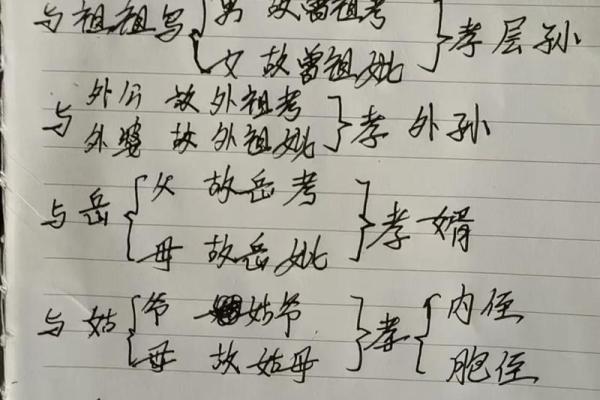 与祖祖写{男 故曾祖考}孝层孙
女 故曾祖妣
与外公 故外祖考}孝外孙
外婆 故外祖妣
与岳{父 故岳考}孝婿
母 故岳妣
与姑{爷 姑爷}孝{内侄
母 故姑母 胞侄